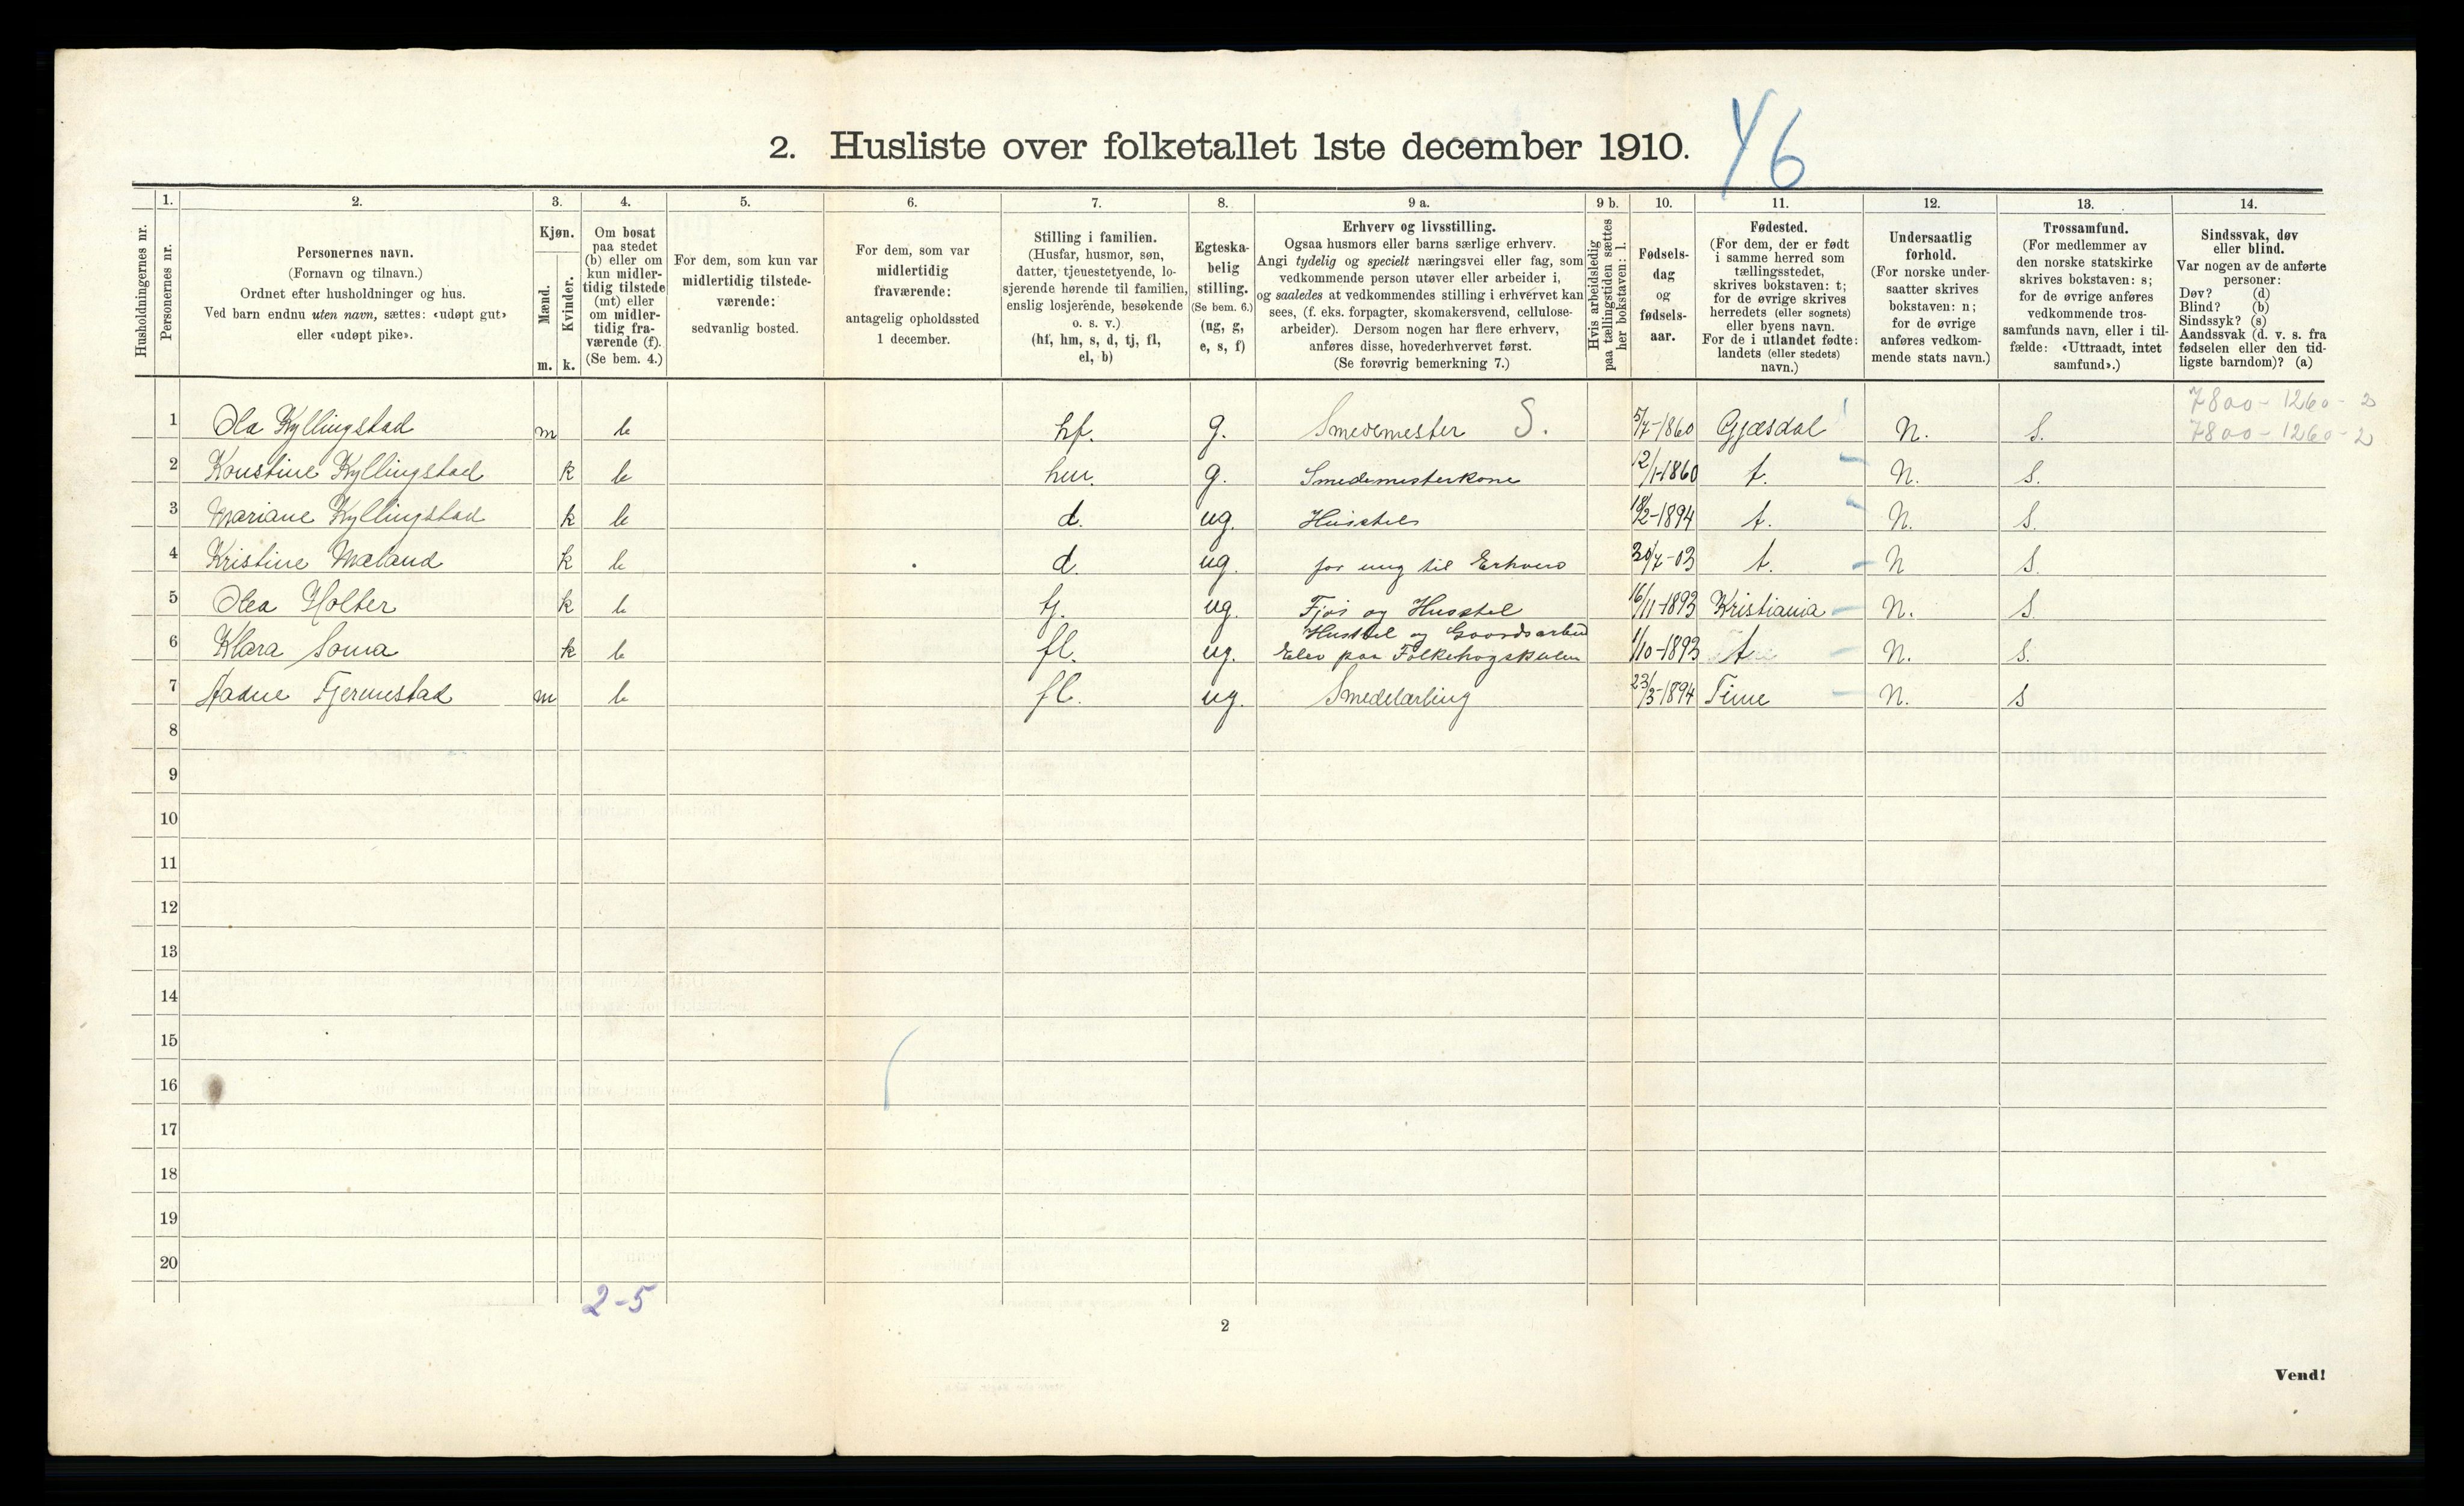 2. Husliste over folketallet 1ste december 1910. 46
Husholdningernes nr.
1.
Personernes nr.
2.
Personernes navn.
(Fornavn og tilnavn.)
Ordnet efter husholdninger og hus.
Ved barn endnu uten navn, sættes: «udøpt gut»
eller «udøpt pike».
3.
Kjøn.
Mænd.
Kvinder.
m. k.
4.
Om bosat
paa stedet
(b) eller om
kun midler-
tidig tilstede
(mt) eller
om midler-
tidig fra-
værende (f).
(Se bem. 4.)
5.
For dem, som kun var
midlertidig tilstede-
værende:
sedvanlig bosted.
6.
For dem, som var
midlertidig
fraværende:
antagelig opholdssted
1 december.
7.
Stilling i familien.
(Husfar, husmor, søn,
datter, tjenestetyende, lo-
sjerende hørende til familien,
enslig losjerende, besøkende
o. s. v.)
(hf, hm, s, d, tj, fl,
el, b)
8.
Egteska-
belig
stilling.
(Se bem. 6.)
(ug, g,
e, s, f)
9 a.
Erhverv og livsstilling.
Ogsaa husmors eller barns særlige erhverv.
Angi tydelig og specielt næringsvei eller fag, som
vedkommende person utøver eller arbeider i,
og saaledes at vedkommendes stilling i erhvervet kan
sees, (f. eks. forpagter, skomakersvend, cellulose-
arbeider). Dersom nogen har flere erhverv,
anføres disse, hovederhvervet først.
(Se forøvrig bemerkning 7.)
9 b.
Hvis arbeidsledig
paa tællingstiden sættes
her bokstaven: l.
10.
Fødsels-
dag
og
fødsels-
aar.
11.
Fødested.
(For dem, der er født
i samme herred som
tællingsstedet,
skrives bokstaven: t;
for de øvrige skrives
herredets (eller sognets)
eller byens navn.
For de i utlandet fødte:
landets (eller stedets)
navn.)
12.
Undersaatlig
forhold.
(For norske under-
saatter skrives
bokstaven: n;
for de øvrige
anføres vedkom-
mende stats navn.)
13.
Trossamfund.
(For medlemmer av
den norske statskirke
skrives bokstaven: s;
for de øvrige anføres
vedkommende tros-
samfunds navn, eller i til-
fælde: «Uttraadt, intet
samfund».)
14.
Sindssvak, døv
eller blind.
Var nogen av de anførte
personer:
Døv? (d)
Blind? (b)
Sindssyk? (s)
Aandssvak (d. v. s. fra
fødselen eller den tid-
ligste barndom)? (a)
7800-1260-2
1 Ola Kyllingstad m b hf. g. Smedemester S. 5/7-1860 Gjæsdal N. S. 7800-1260-2
2 Konstine Kyllingstad k b hm. g. Smedemesterkone 12/1-1860 t. N. S.
3 Mariane Kyllingstad k b d. ug. Husstel 18/2-1894 t. N. S.
4 Kristine Mæland k b d. ug. for ung til Erhverv 30/7-03 t. N S.
5 Olea Holter k b tj. ug. Fjøs og Husstel 16/11-1893 Kristiania N. S.
Husstel og Gaardsarbeid
6 Klara Soma k b fl. ug. Elev paa Folkehøgskulen 1/10-1893 t N. S.
7 Aadne Fjermestad m b fl. ug. Smedelærling 23/3-1894 Time N. S
8
9
10
11
12
13
14
15
16
17
18
19
20
2-5
2
Vend!